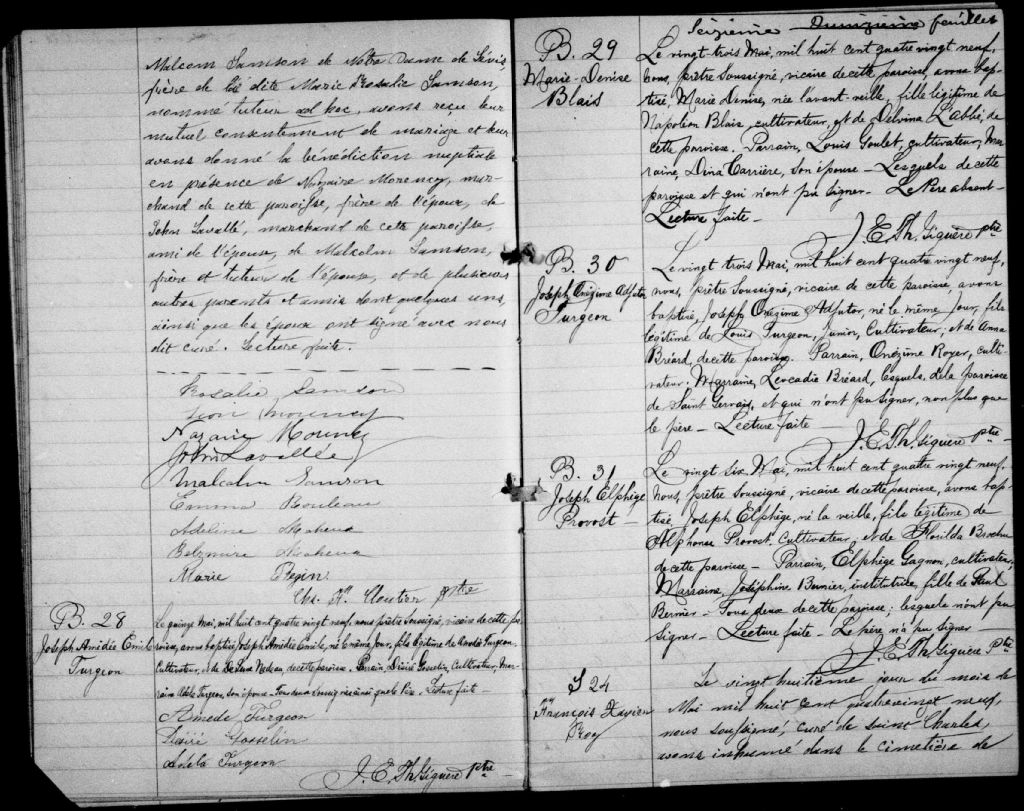 Malcom Samson de Notre Dame de Lévis,
frère de la dite Marie Rosalie Samson,
nommé tuteur ad hoc, avons reçu leur
mutuel consentement de mariage et leur
avons donné la bénédiction nuptiale
en présence de Nazaire Morency, mar-
chand de cette paroisse, frère de l'époux, de
John Lavallé, marchand de cette paroisse,
ami de l'épouse, de Malcolm Samson,
frère et tuteur de l'épouse, et de plusieurs
autres parents et amis dont quelques uns,
ainsi que les époux ont signé avec nous
dit curé. Lecture faite.
Rosalie Samson
Léon Morency
Nazaire Morency
John Lavallée
Malcolm Samson
Emma Rouleau
Adeline
Belzmire
Marie Bégin
Chs. Fs. Cloutier ptre
B. 28
Joseph Amédée Emile
Turgeon
Le quinze Mai, mil huit cent quatre vingt neuf, nous prêtre soussigné, vicaire de cette pa-
roisse, avons baptisé, Joseph Amédée Emile, né le même jour, fils légitime de Amédé Turgeon,
Cultivateur, et de Nadeau de cette paroisse. Parrain, Désiré Gosselin, Cultivateur, Mar-
raine Adèle Turgeon, son épouse - Tous deux soussignés ainsi que le Père - Lecture faite -
Amédé Turgeon
Désiré Gosselin
Adela Turgeon
J. E. Th. Giguère Ptre
Seizième Quinzième feuillet
B. 29
Marie-Denise
Blais
Le vingt trois Mai, mil huit cent quatre vingt neuf,
Nous, prêtre Soussigné, vicaire de cette paroisse, avons bap-
tisé, Marie Denise, née l'avant-veille, fille légitime de
Napoléon Blais, cultivateur, et de Delvina Labbé, de
cette paroisse. Parrain, Louis Goulet, cultivateur; Mar-
raine, Dina Carrière, son épouse - Lesquels de cette
paroisse et qui n'ont pu signer - Le Père absent -
Lecture faite -
J. E. Th. Giguère ptre
B. 30
Joseph Onézime Adjutor
Turgeon
Le vingt trois Mai, mil huit cent quatre vingt neuf,
nous, prêtre Soussigné, vicaire de cette paroisse, avons
baptisé, Joseph Onézime Adjutor, né le même jour, fils
légitime de Louis Turgeon, junior, Cultivateur, et de Anna
Bréard, de cette paroisse. Parrain, Onézime Royer, culti-
vateur; Marraine, Léocadie Bréard, lesquels, de la paroisse
de Saint Gervais, et qui n'ont pu signer, non plus que
le père - Lecture faite -
J. E. Th. Giguère ptre -
B. 31
Joseph Elphège
Provost -
Le vingt six Mai, mil huit cent quatre vingt neuf,
Nous, prêtre Soussigné, vicaire de cette paroisse, avons bap-
tisé, Joseph Elphège, né la veille, fils légitime de
Alphonse Provost, Cultivateur, et de Florilda Brochu
de cette paroisse - Parrain, Elphège Gagnon, cultivateur,
Marraine, Joséphine Bernier, institutrice, fille de Paul
Bernier - Tous deux de cette paroisse; lesquels n'ont pu
signer - Lecture faite - Le père n'a pu signer
J. E. Th. Giguère Ptre
S 24
Frs François Xavier
Roy
Le vingt huitième jour du mois de
Mai mil huit cent quatrevingt neuf,
nous soussigné, curé de Saint Charles,
avons inhumé dans le cimetière de